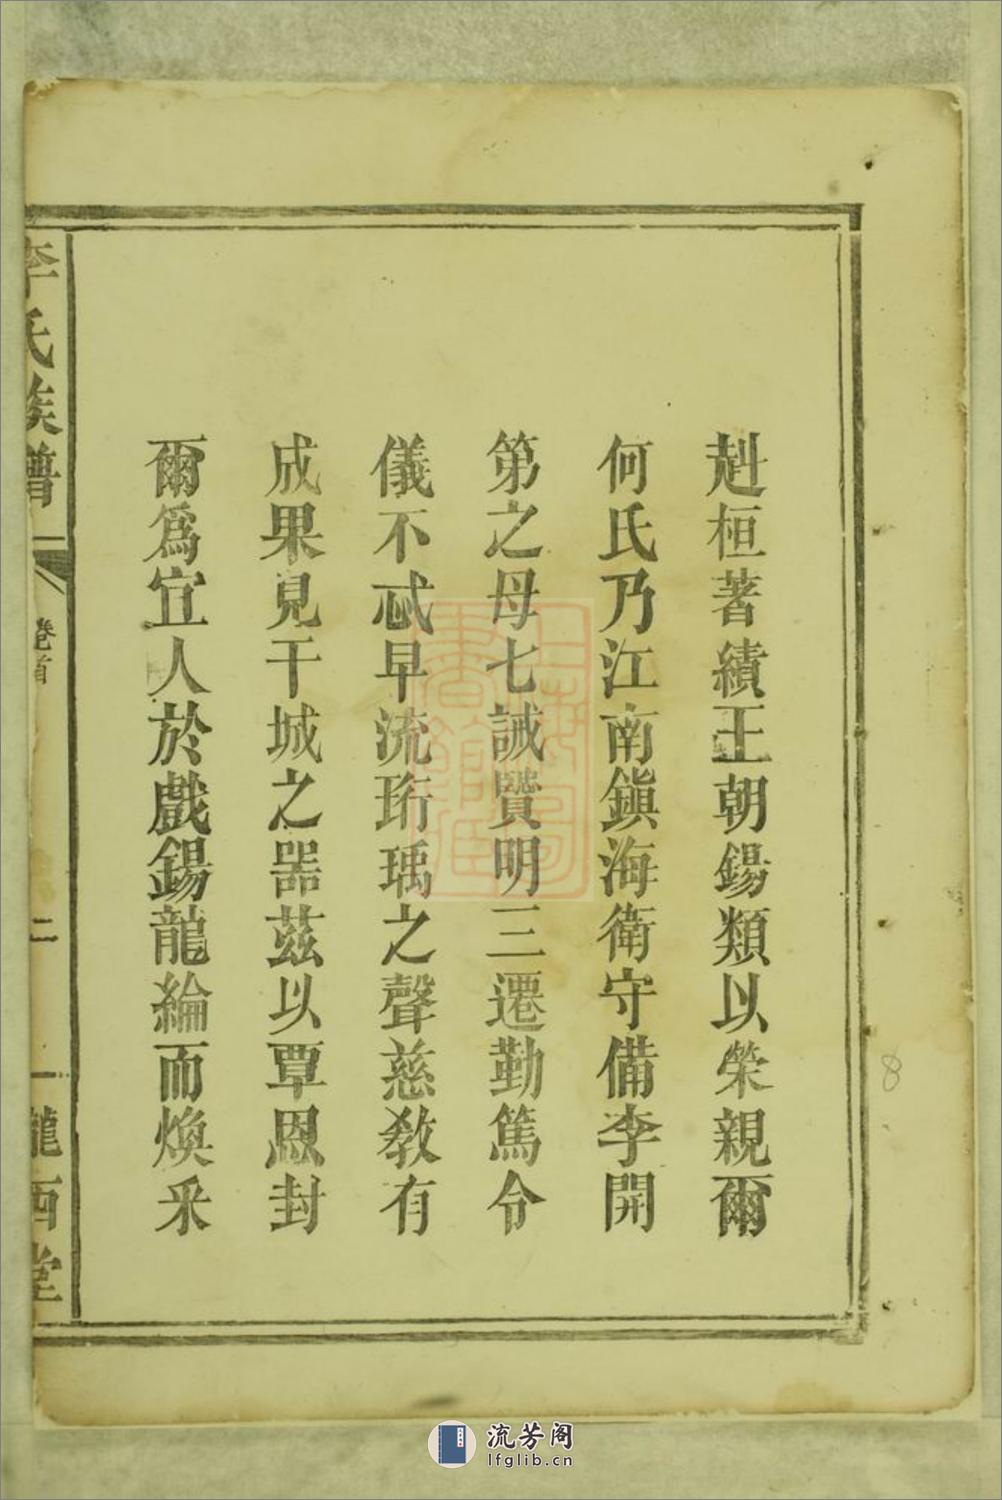 赳桓著績王朝錫類以榮親爾
何氏乃江南鎭海衛守備李開
第之母七誡賢明三遷勤篤令
儀不忒早流珩瑀之聲慈敎有
成果見干城之器茲以覃恩封
爾爲宜人於戲錫龍綸而煥采
李氏族譜
卷首
二
隴西堂
8
流芳阁
lfglib.cn